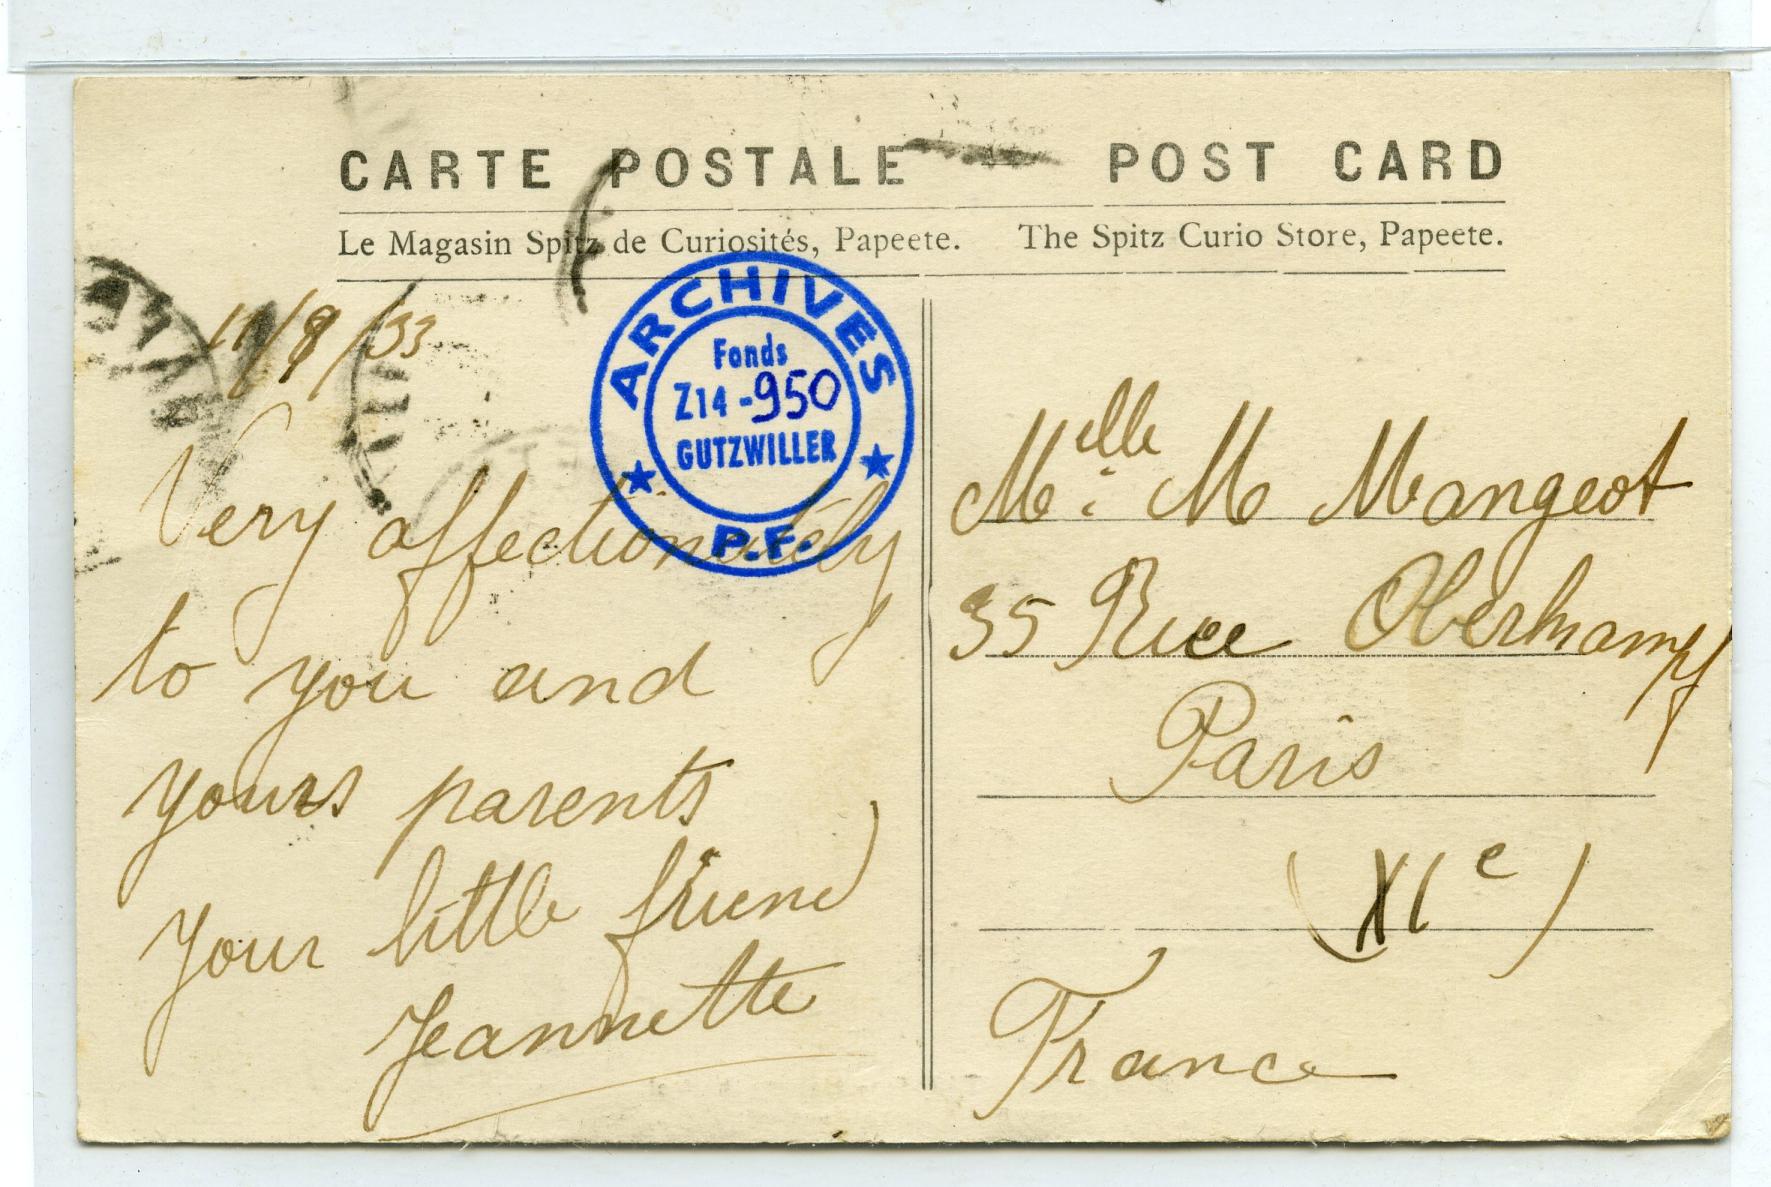 CARTE POSTALE — POST CARD
Le Magasin Spitz de Curiosités, Papeete. The Spitz Curio Store, Papeete.
11/8/33
ARCHIVES
Fonds
Z14-950
GUTZWILLER
P.F.
Very affectionately
to you and
yours parents
your little friend
Jeannette
Melle M Mangeot
35 Rue Oberkampf
Paris
(XIe)
France